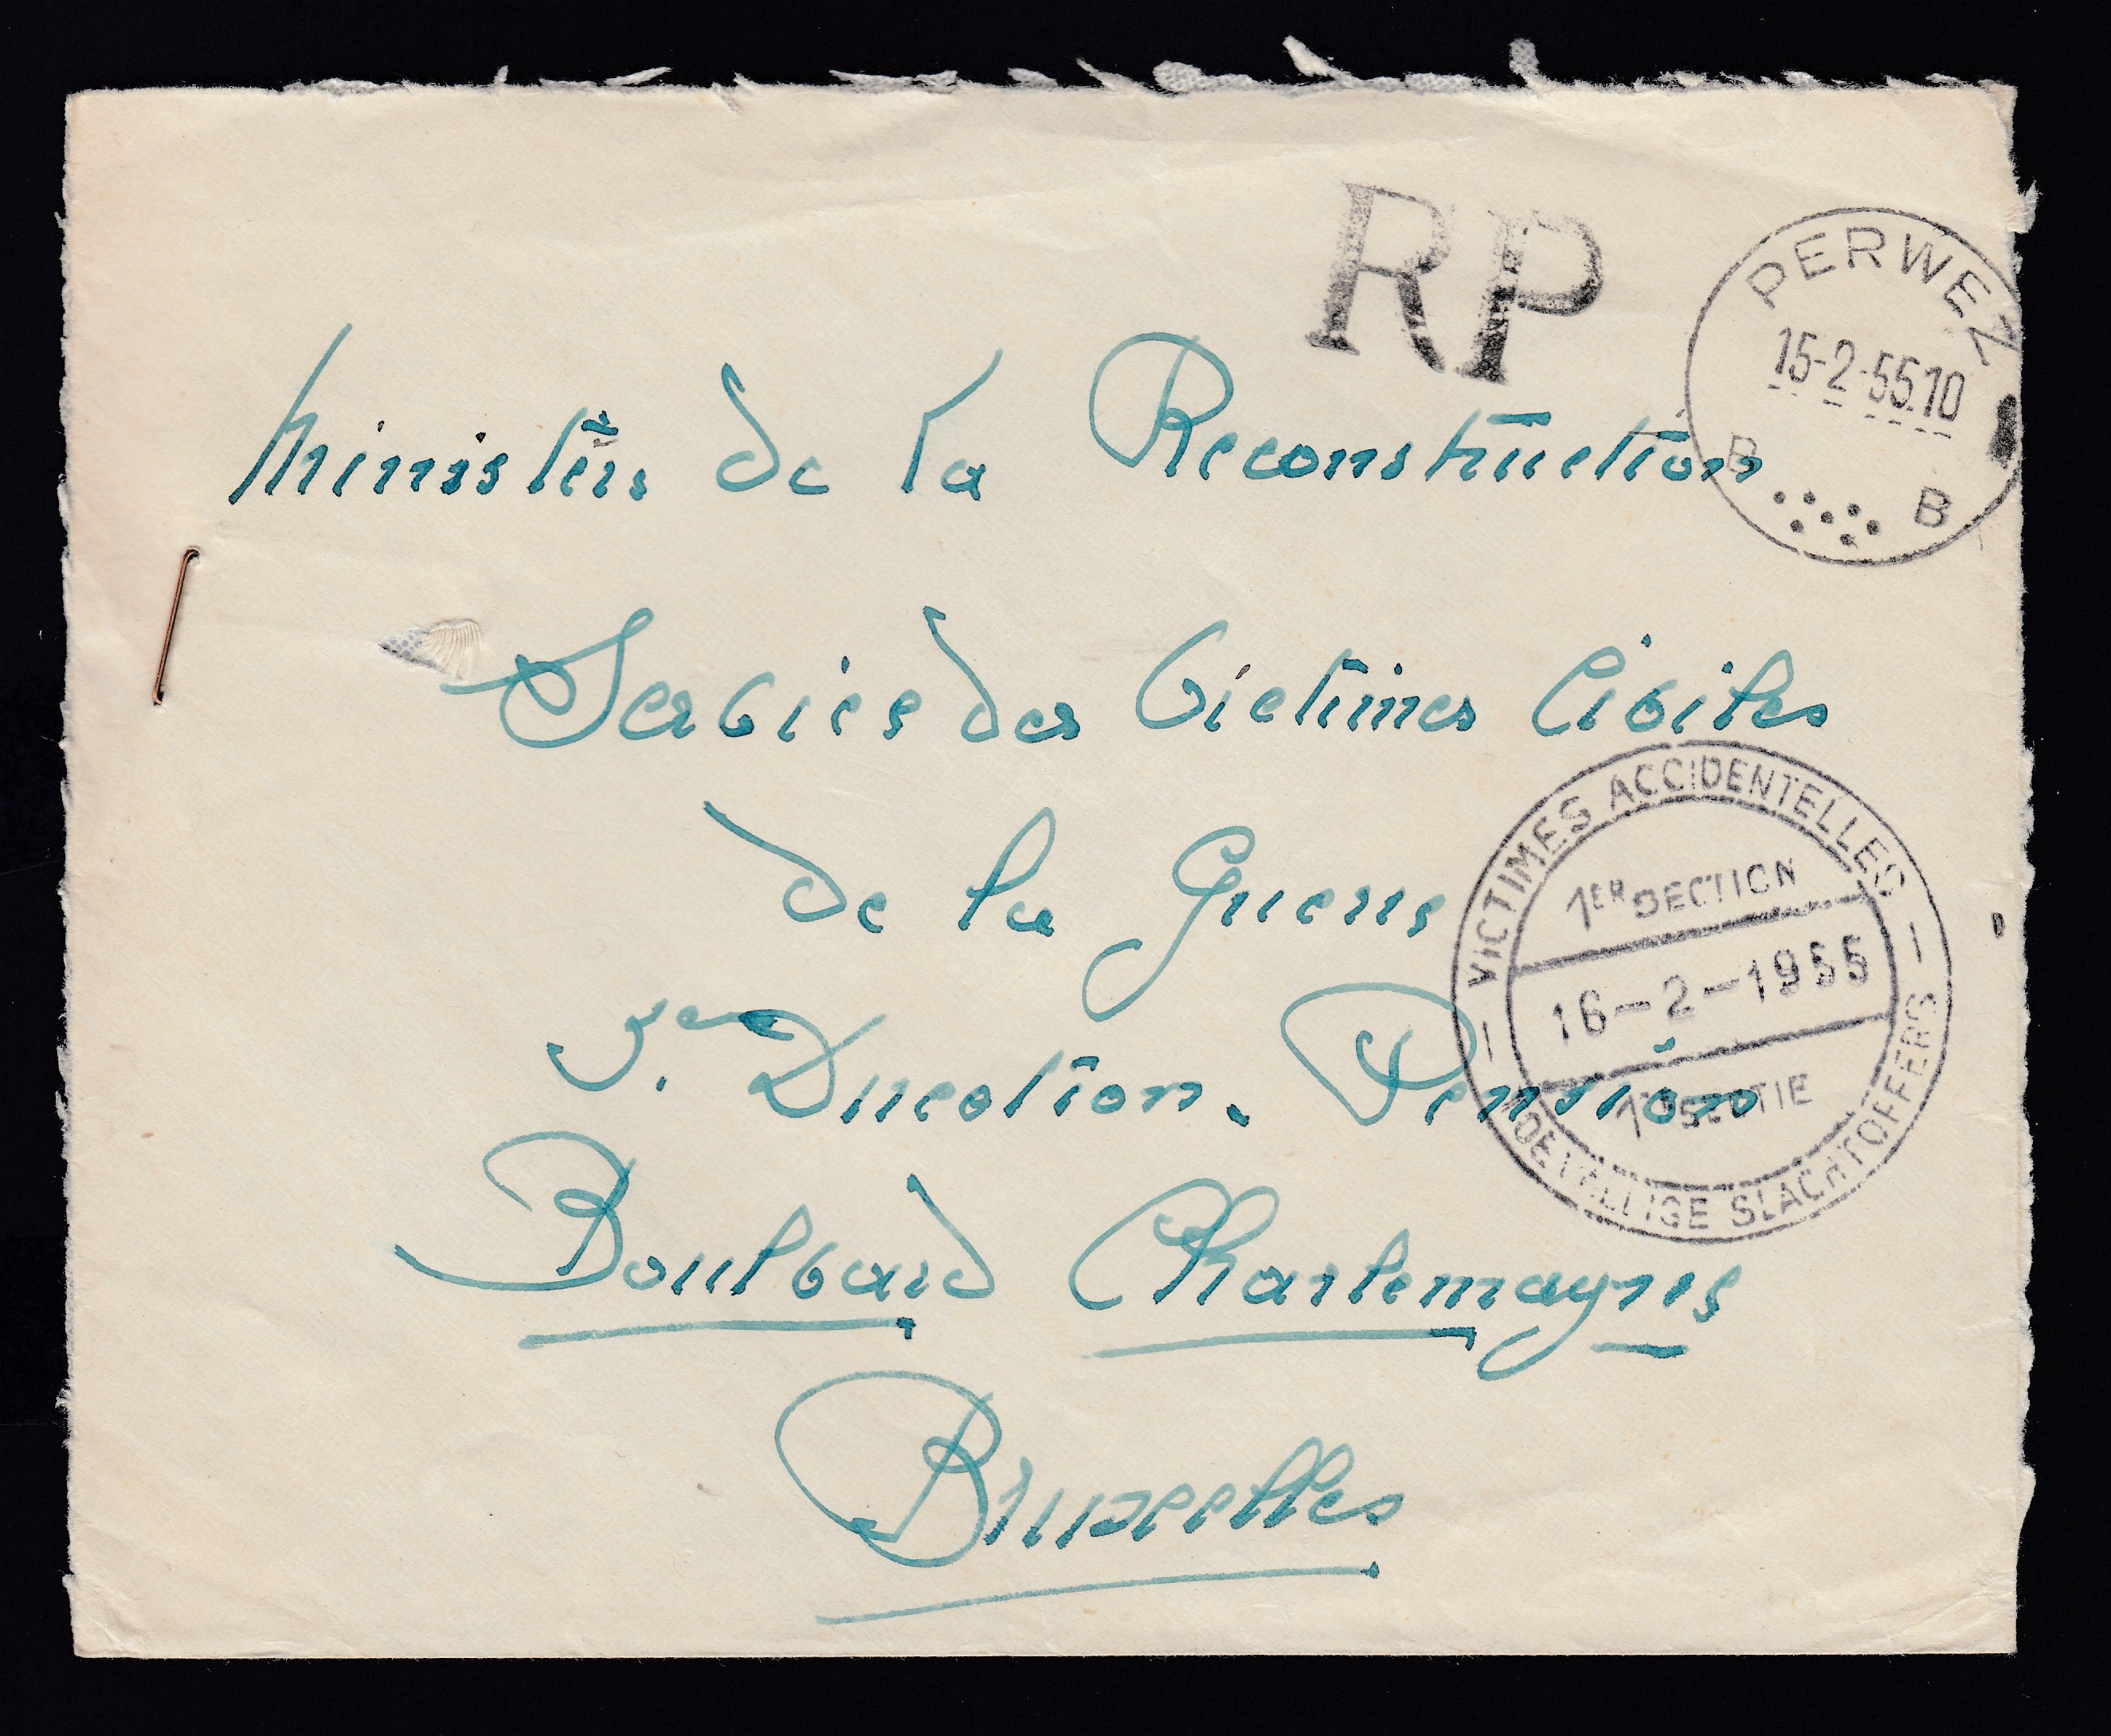 RP
PERWEZ
15-2-55.10
B B
Ministère de la Reconstruction
Service des Victimes Civiles
de la Guerre
VICTIMES ACCIDENTELLES
1ER SECTION
16-2-1955
SECTIE
TOEVALLIGE SLACHTOFFERS
Direction. Pension
Boulvard Charlemagne
Bruxelles